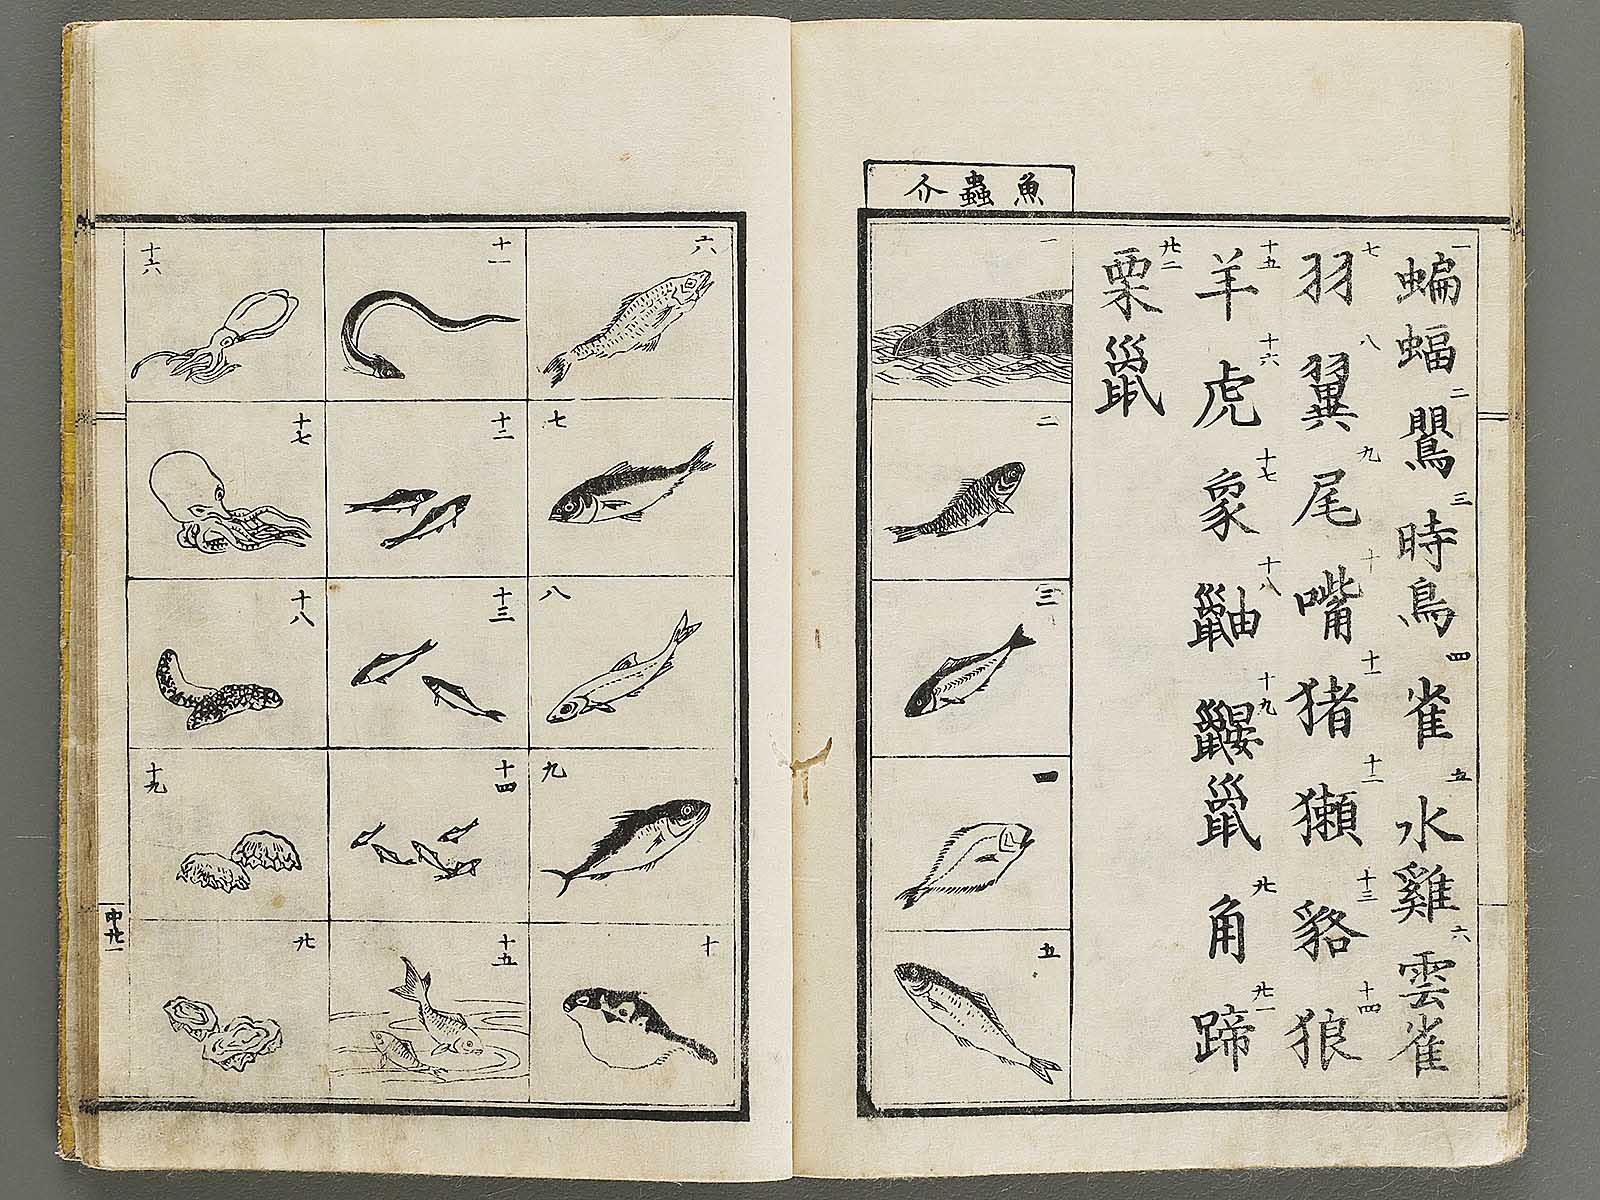 一 蝙蝠 二 鸎 三 時鳥 四 雀 五 水雞 六 雲雀
七 羽 八 翼 九 尾 十 嘴 十一 猪 十二 獺 十三 貉 十四 狼
十五 羊 十六 虎 十七 象 十八 鼬 十九 鼴鼠 廿 角 廿一 蹄
廿二 栗鼠
魚蟲介
一
二
三
五
六
七
八
九
十
十一
十二
十三
十四
十五
十六
十七
十八
十九
廿
中廿一